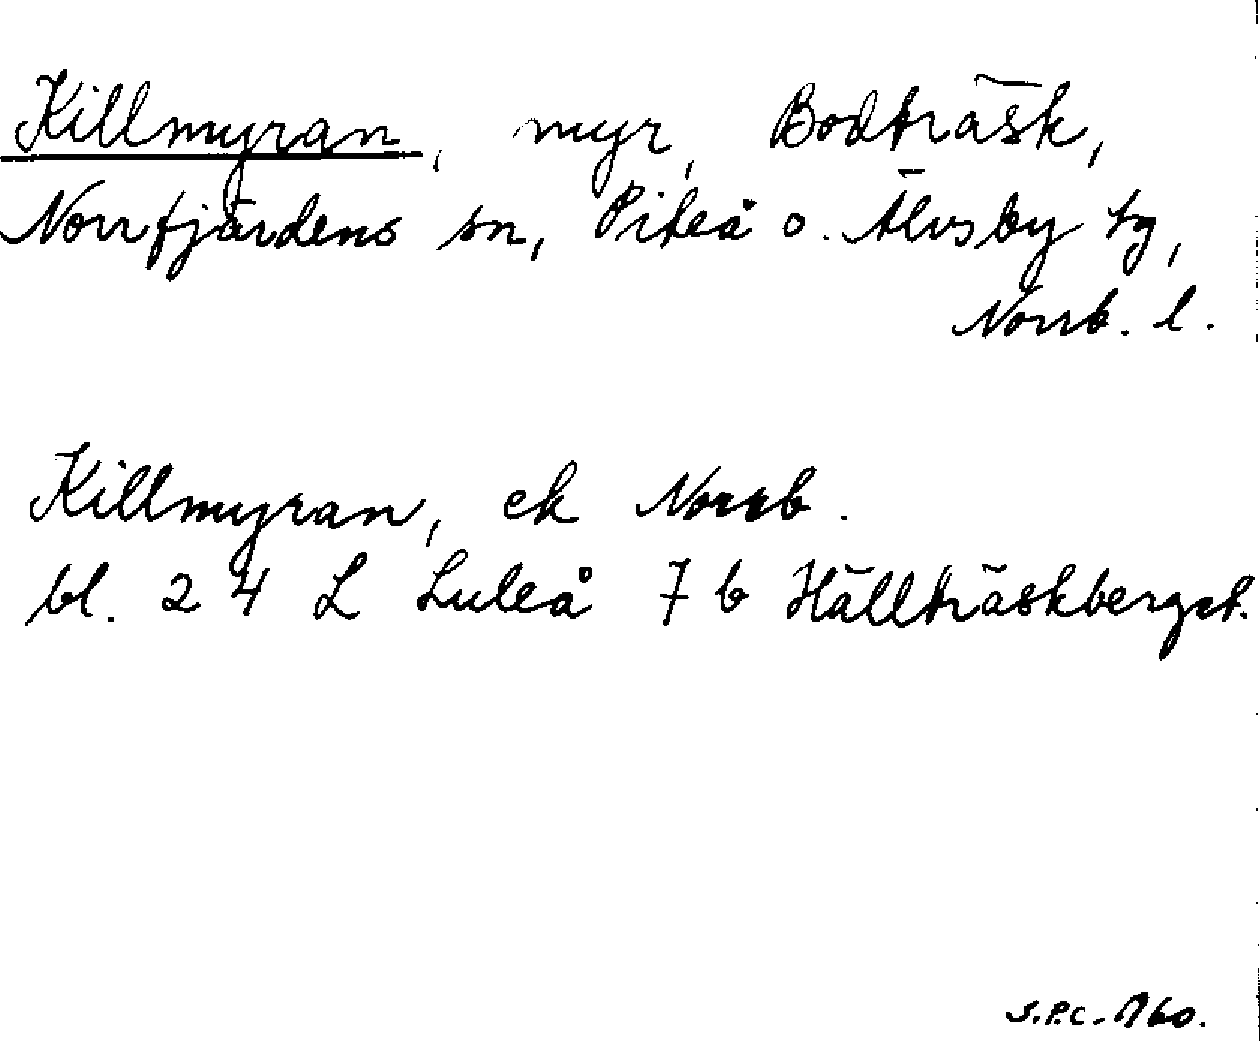 Killmyran, myr, Bodträsk,
Norrfjärdens sn, Piteå o. Älvsby tg,
Norrb. l.
Killmyran, ek Norrb.
bl. 24 L Luleå 7 b Hällträskberget.
S.P.C. 1960.